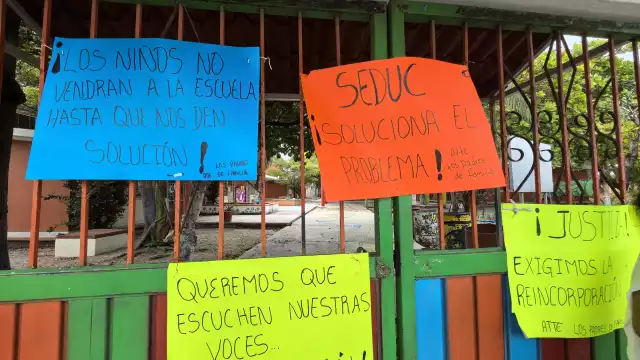 ¡LOS NIÑOS NO
VENDRAN A LA ESCUELA
HASTA QUE NOS DEN
SOLUCIÓN!
LOS PADRES
DE FAMILIA
SEDUC
¡SOLUCIONA EL
PROBLEMA!
ATTE
LOS PADRES DE
FAMILIA
QUEREMOS QUE
ESCUCHEN NUESTRAS
VOCES...
¡JUSTICIA!
EXIGIMOS LA
REINCORPORACIÓN
ATTE LOS PADRES DE